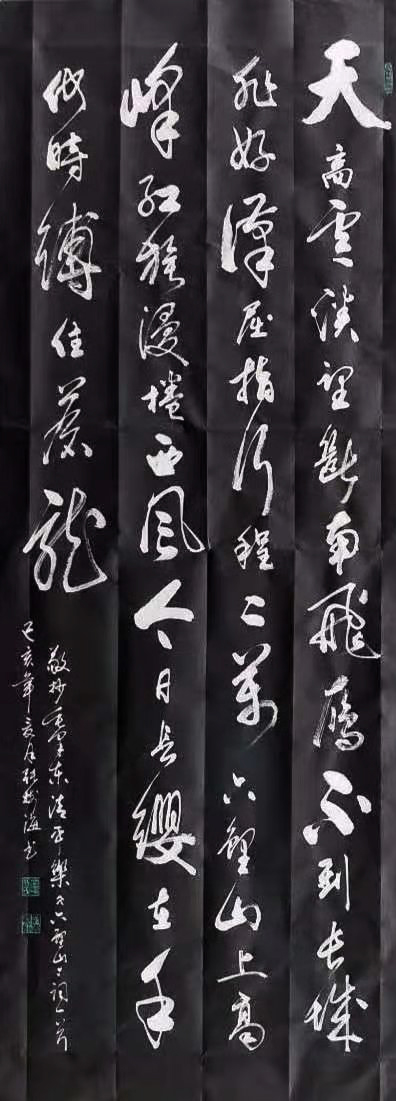 天高雲淡望斷南飛雁不到長城
非好漢屈指行程二萬六盤山上高
峰紅旗漫捲西風今日長纓在手
何時縛住蒼龍
敬抄毛澤東清平樂之六盤山之詞一首
己亥年亥月海书